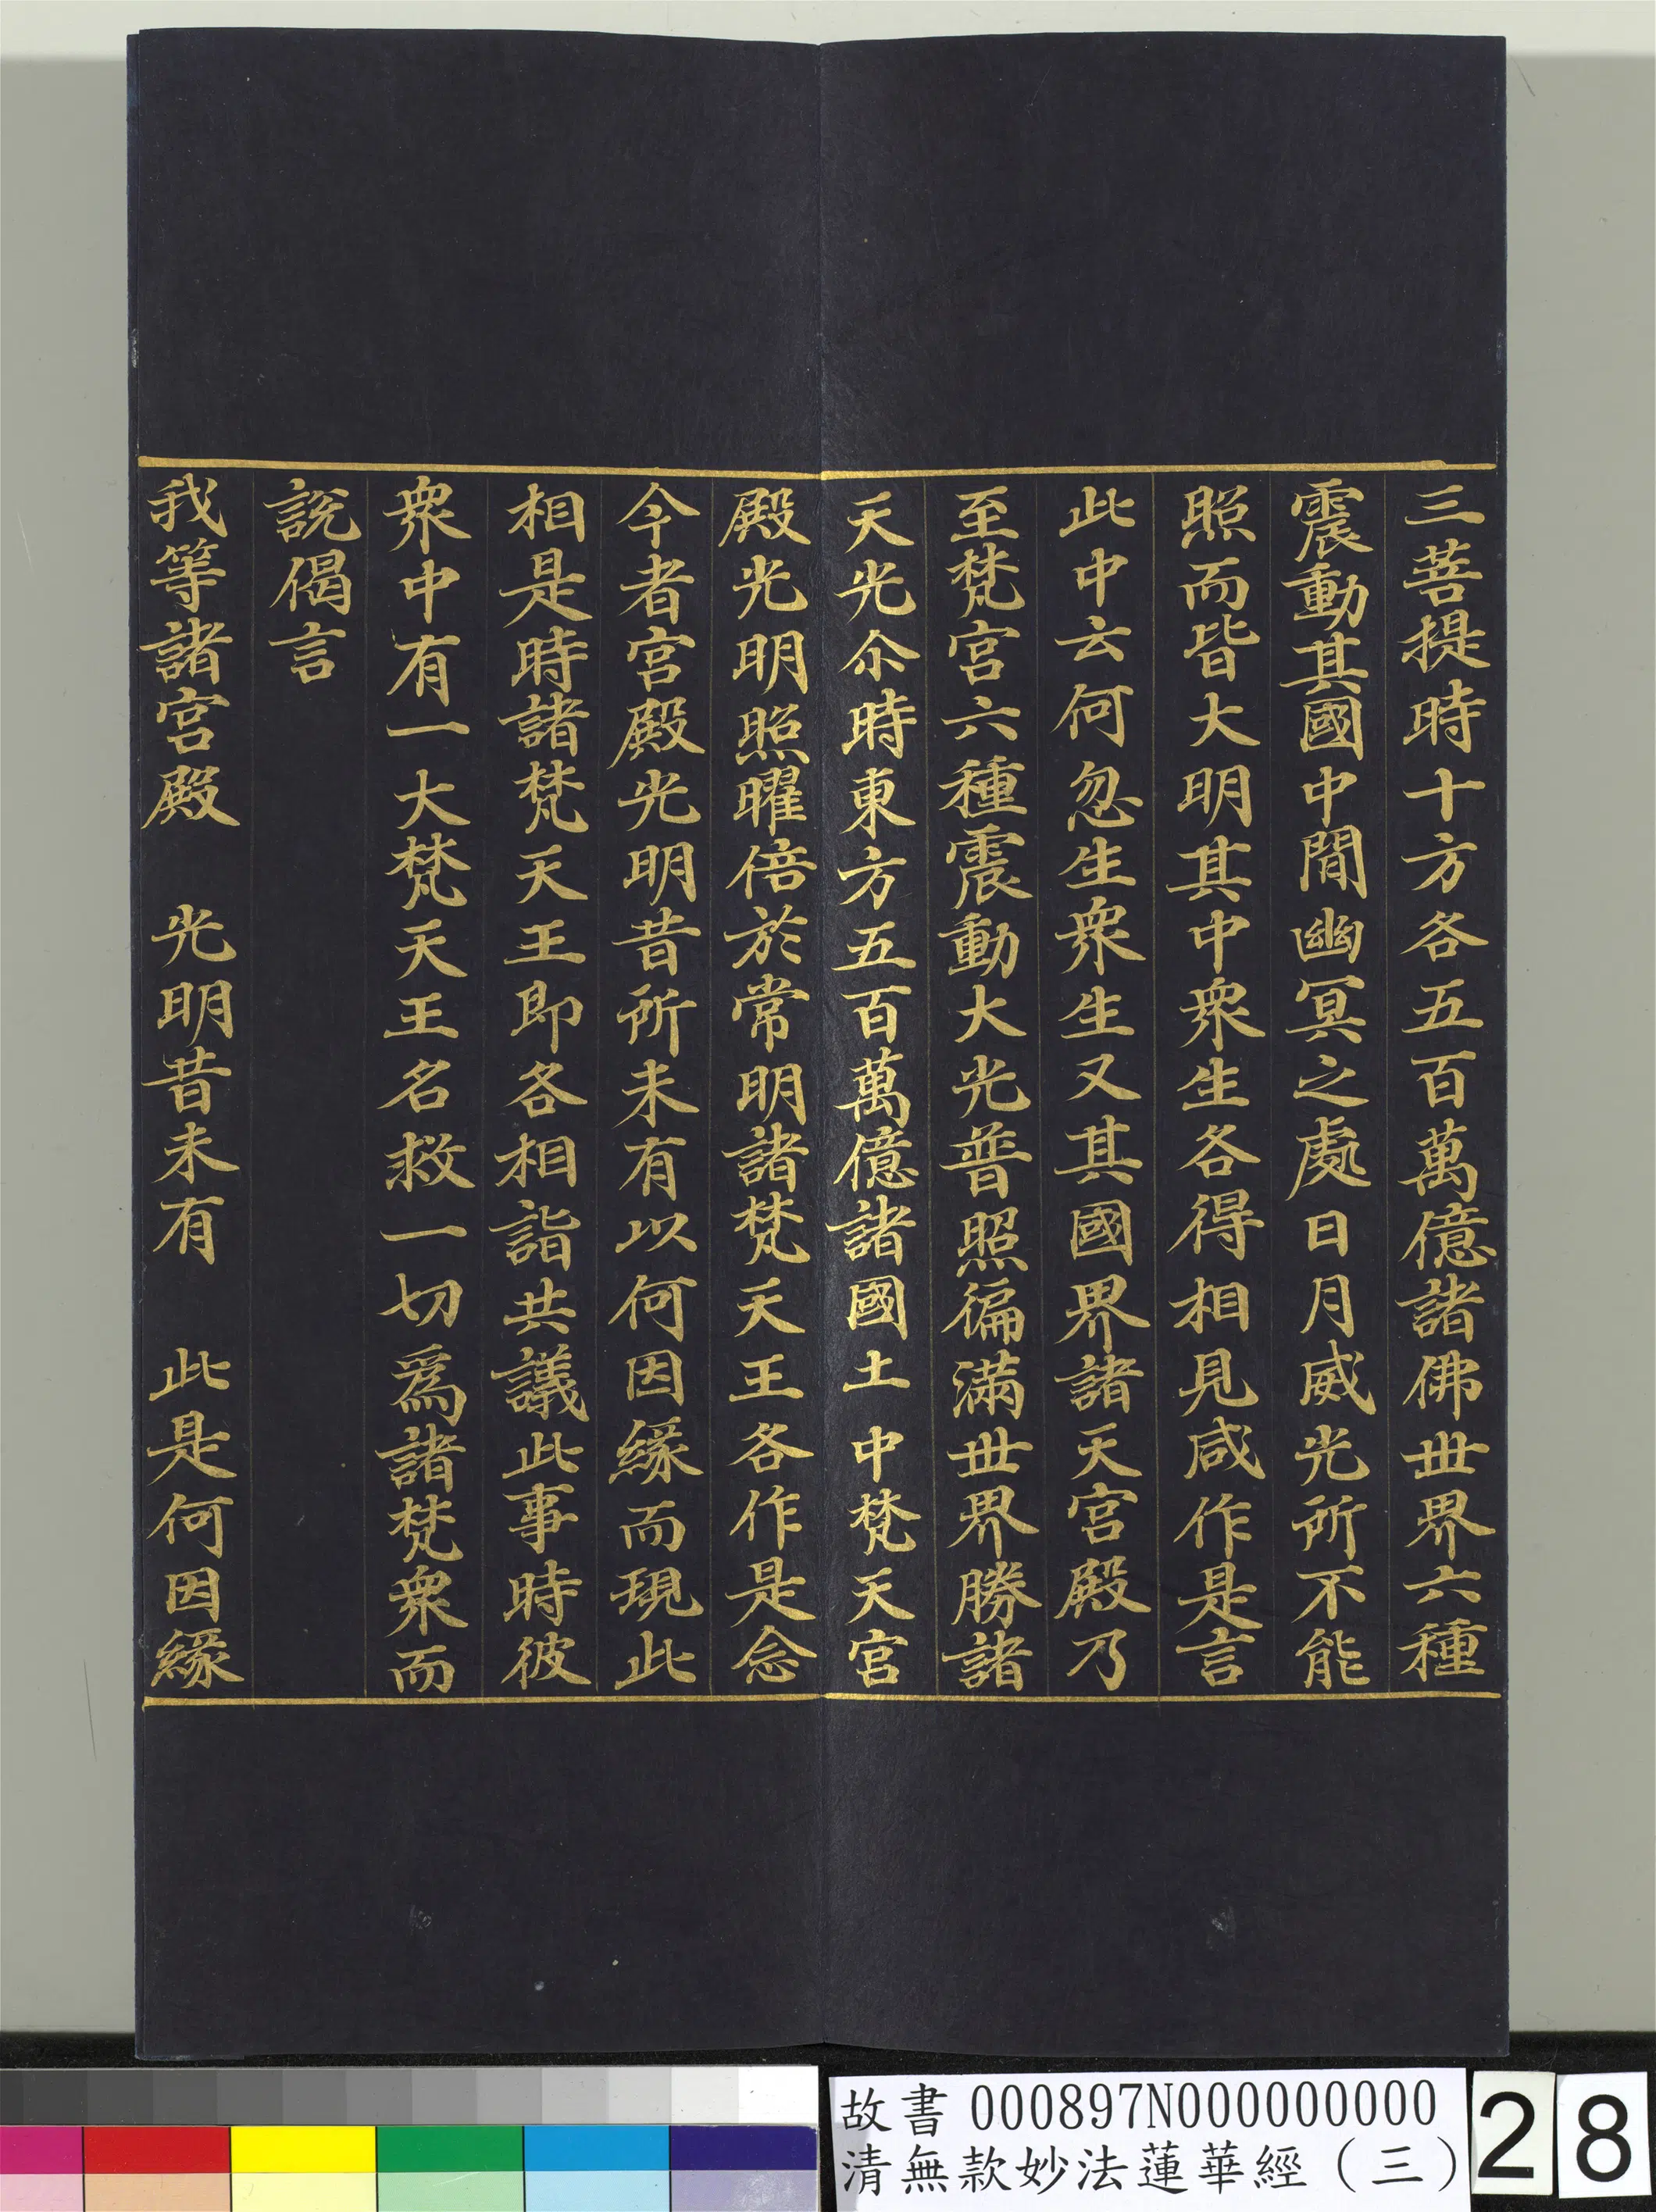 三菩提時十方各五百萬億諸佛世界六種
震動其國中間幽冥之處日月威光所不能
照而皆大明其中衆生各得相見咸作是言
此中云何忽生衆生又其國界諸天宮殿乃
至梵宮六種震動大光普照徧滿世界勝諸
天光尒時東方五百萬億諸國土中梵天宮
殿光明照曜倍於常明諸梵天王各作是念
今者宮殿光明昔所未有以何因緣而現此
相是時諸梵天王即各相詣共議此事時彼
衆中有一大梵天王名救一切爲諸梵衆而
說偈言
我等諸宮殿　光明昔未有　此是何因緣
故書 000897N000000000
清無款妙法蓮華經（三）
28